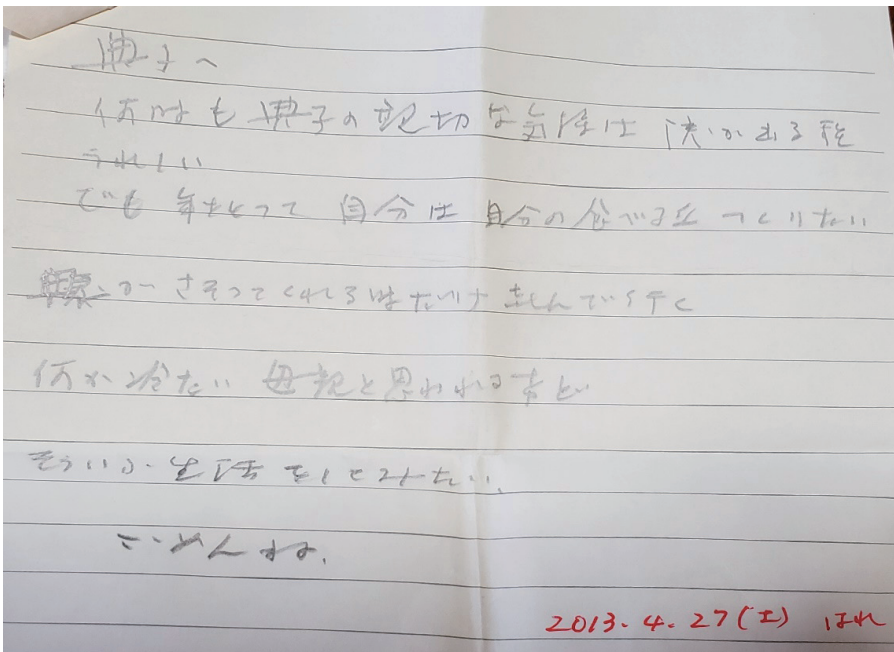 典子へ
何時も典子の親切な気持は涙が出る程
うれしい
でも年をとって自分は自分の食べる丘つくりたい
がさそってくれる時だけ喜んで行く
何か冷たい母親と思われるけど
そういふ生活をしてみたい、
ごめんね、
2013.4.27(土) はれ